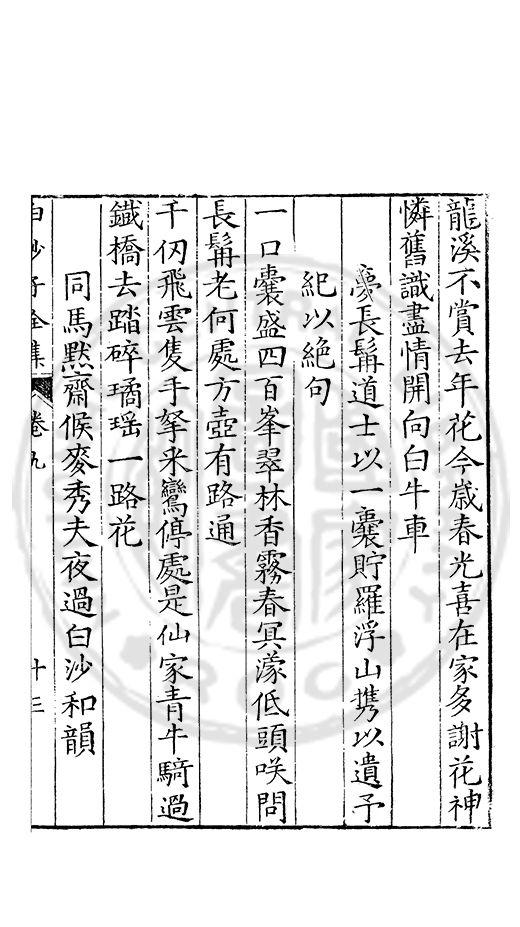 龍溪不賞去年花今歲春光喜在家多謝花神
憐舊識盡情開向白牛車
夢長髯道士以一囊貯羅浮山携以遺予
紀以絶句
一口囊盛四百峯翠林香霧春冥濛低頭咲問
長髯老何處方壺有路通
千仞飛雲隻手拏来鸞停處是仙家青牛騎過
鐵橋去踏碎璚瑶一路花
同馬默齋候麥秀夫夜過白沙和韻
白沙子全集 卷九 十三